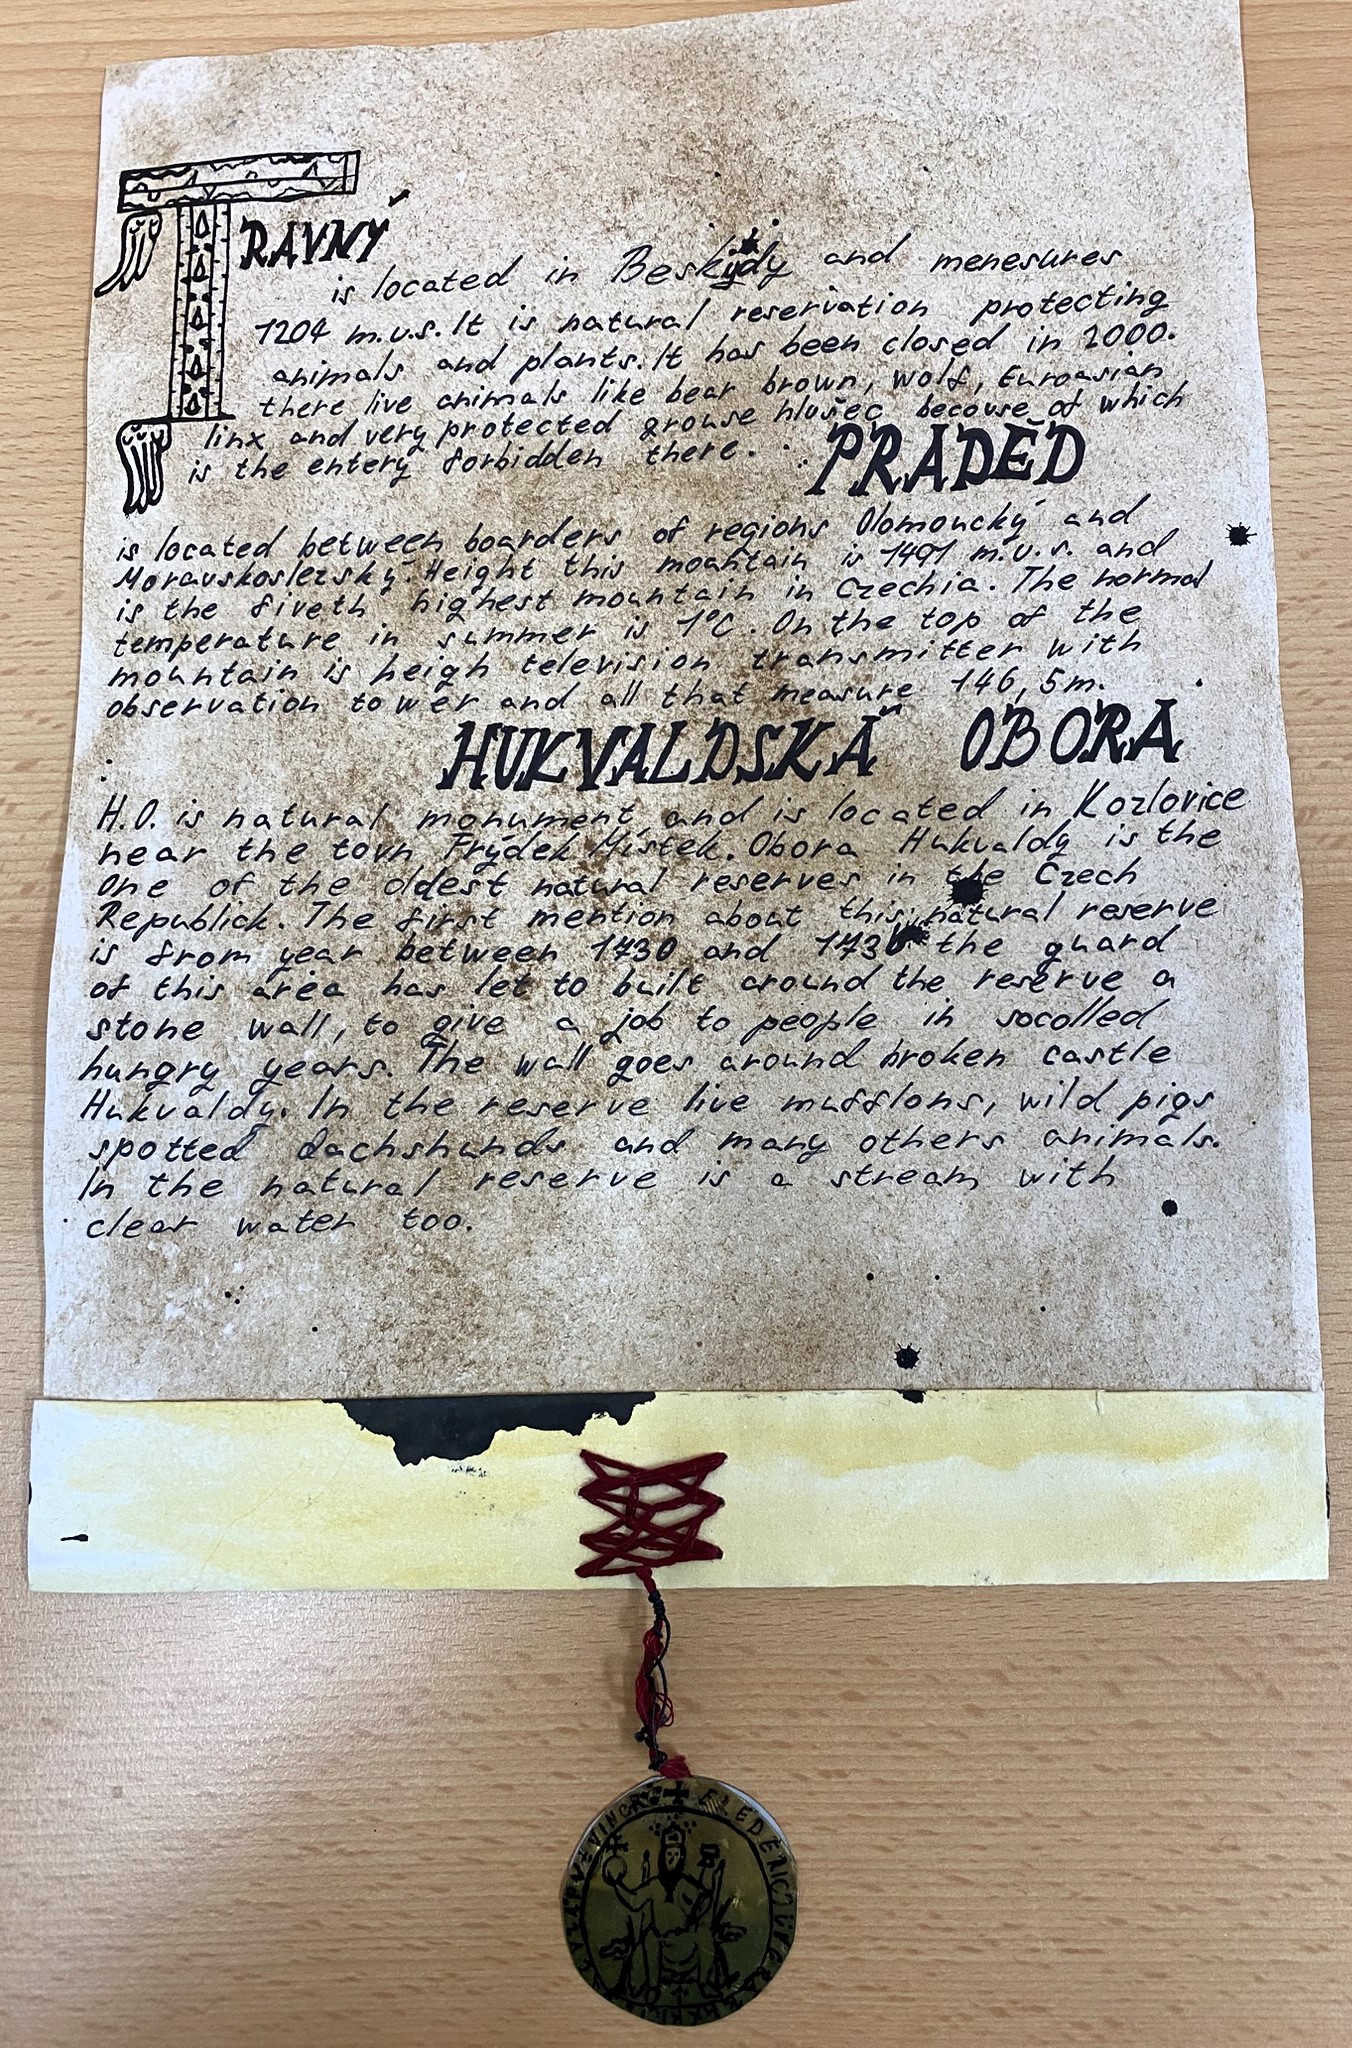 TRAVNÝ
is located in Beskydy and menesures
1204 m.u.s. It is natural reservation protecting
animals and plants. It has been closed in 2000.
there live animals like bear brown, wolf, Euroasian
linx and very protected grouse hlušec becouse of which
is the entery forbidden there.
PRADĚD
is located between boarders of regions Olomoucký and
Moravskoslezský. Height this mountain is 1491 m.u.s. and
is the fiveth highest mountain in Czechia. The normal
temperature in summer is 1°C. On the top of the
mountain is heigh television transmitter with
observation tower and all that measure 146,5m.
HUKVALDSKÁ OBORA
H.O. is natural monument and is located in Kozlovice
near the town Frýdek Místek. Obora Hukvaldy is the
One of the oldest natural reserves in the Czech
Republick. The first mention about this natural reserve
is from year between 1730 and 1736 the guard
of this area has let to built around the reserve a
stone wall, to give a job to people in socolled
hungry years. The wall goes around broken castle
Hukvaldy. In the reserve live mufflons, wild pigs
spotted dachshunds and many others animals.
In the natural reserve is a stream with
clear water too.